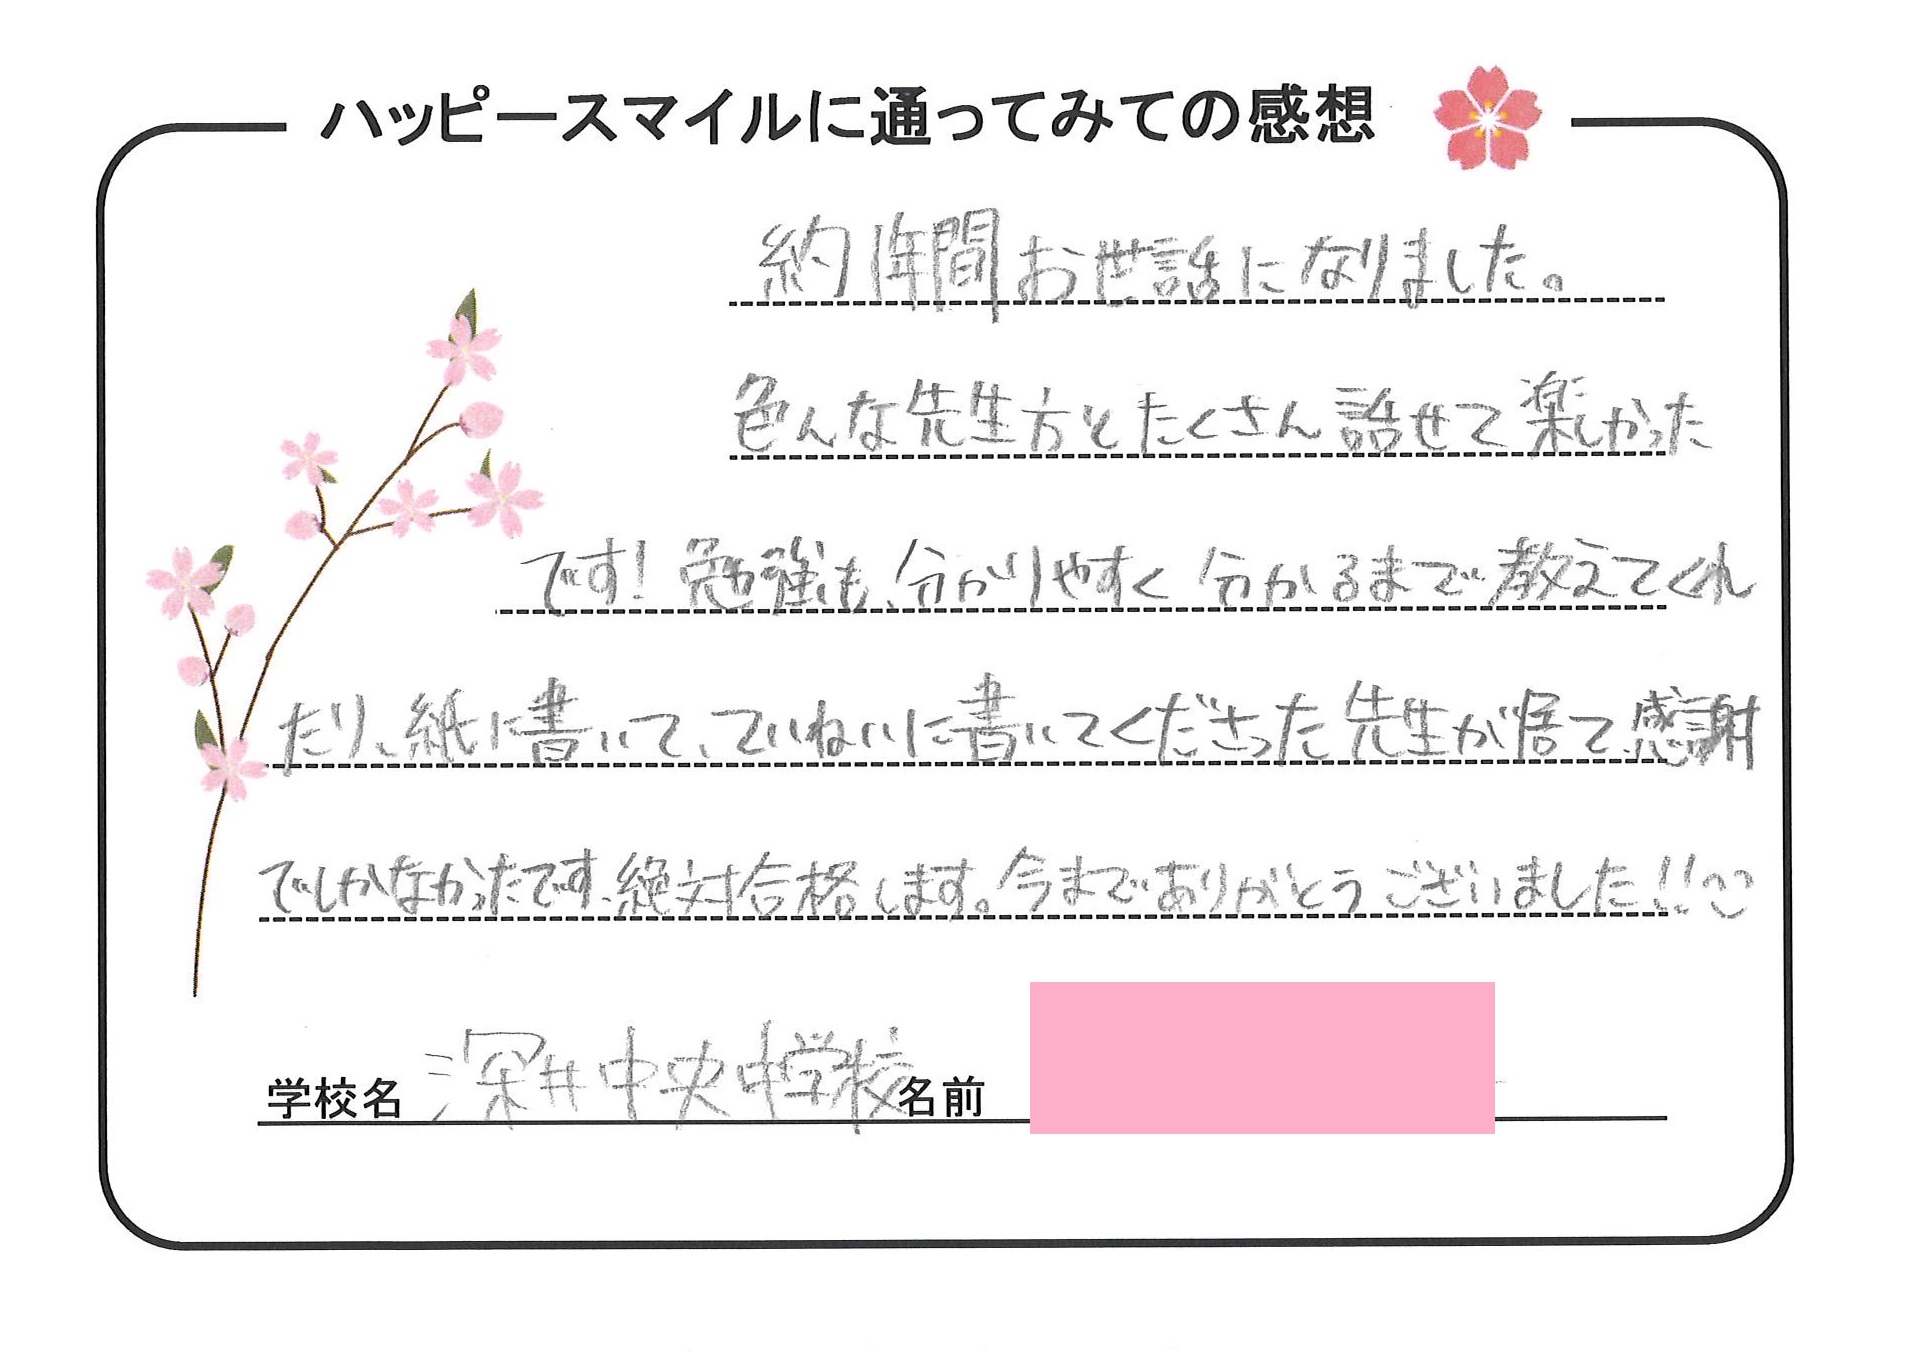 ハッピースマイルに通ってみての感想
約1年間お世話になりました。
色んな先生方とたくさん話せて楽しかった
です!勉強も、分かりやすく分かるまで教えてくれ
たり、紙に書いて、ていねいに書いてくださった先生が居て、感謝
でしかなかったです。絶対合格します。今までありがとうございました!!
学校名 深井中央中学校 名前